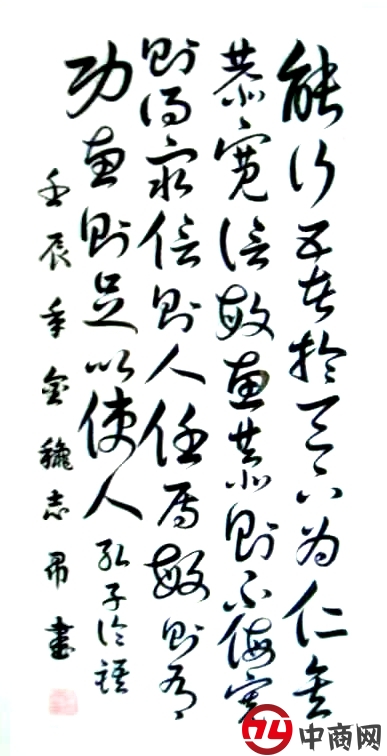 能行五者於天下为仁矣
恭宽信敏惠恭则不侮宽
则得眾信则人任焉敏则有
功惠则足以使人 孔子论语
壬辰年金穗志書
中商网